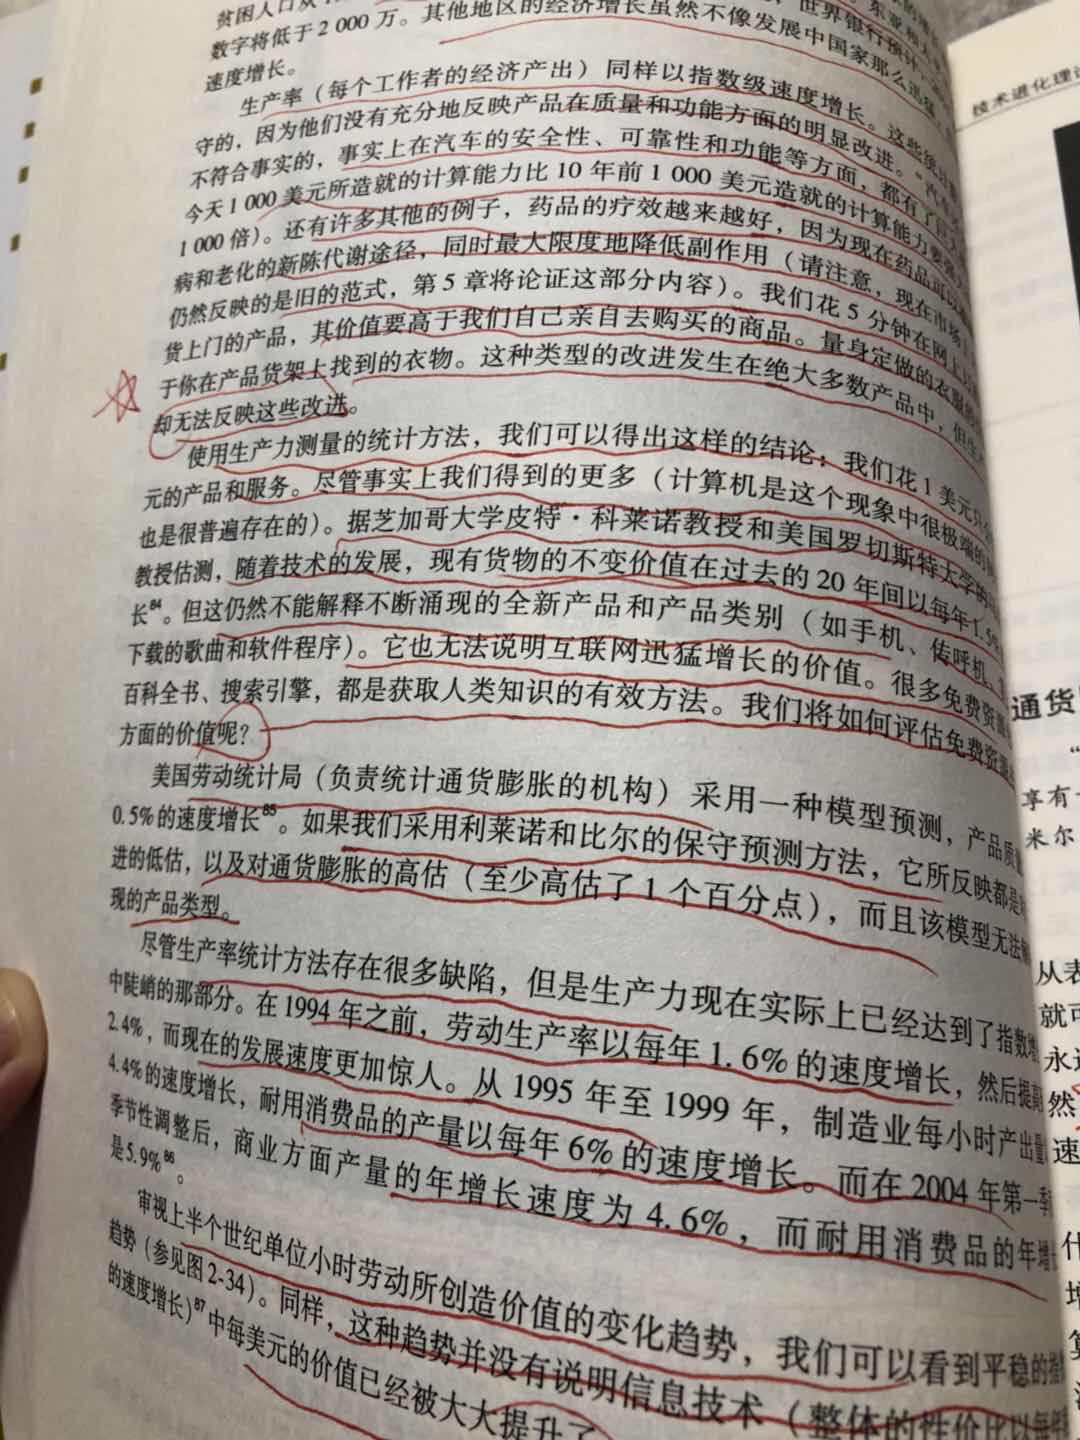 贫困人口从
数字将低于2 000 万。其他地区的经济增长虽然不像发展中国家那么迅猛
世界银行预计
速度增长。
生产率（每个工作者的经济产出）同样以指数级速度增长。这些统计
守的，因为他们没有充分地反映产品在质量和功能方面的明显改进。“汽车
不符合事实的，事实上在汽车的安全性、可靠性和功能等方面，都有了
今天1 000 美元所造就的计算能力比 10 年前 1 000 美元造就的计算能力要强
1 000 倍）。还有许多其他的例子，药品的疗效越来越好，因为现在药品可以
病和老化的新陈代谢途径，同时最大限度地降低副作用（请注意，现在市场上
仍然反映的是旧的范式，第 5 章将论证这部分内容）。我们花 5 分钟在网上
货上门的产品，其价值要高于我们自己亲自去购买的商品。量身定做的衣服的
于你在产品货架上找到的衣物。这种类型的改进发生在绝大多数产品中，但生产
却无法反映这些改进。
使用生产力测量的统计方法，我们可以得出这样的结论：我们花 1 美元只
元的产品和服务。尽管事实上我们得到的更多（计算机是这个现象中很极端的
也是很普遍存在的）。据芝加哥大学皮特·科莱诺教授和美国罗切斯特大学的
教授估测，随着技术的发展，现有货物的不变价值在过去的 20 年间以每年1.5%
长84。但这仍然不能解释不断涌现的全新产品和产品类别（如手机、传呼机、
下载的歌曲和软件程序）。它也无法说明互联网迅猛增长的价值。很多免费资源
百科全书、搜索引擎，都是获取人类知识的有效方法。我们将如何评估免费资源
方面的价值呢？
美国劳动统计局（负责统计通货膨胀的机构）采用一种模型预测，产品质量
0.5%的速度增长85。如果我们采用利莱诺和比尔的保守预测方法，它所反映都是
进的低估，以及对通货膨胀的高估（至少高估了 1 个百分点），而且该模型无法
现的产品类型。
尽管生产率统计方法存在很多缺陷，但是生产力现在实际上已经达到了指数增
中陡峭的那部分。在 1994 年之前，劳动生产率以每年 1.6% 的速度增长，然后提高
2.4%，而现在的发展速度更加惊人。从 1995 年至 1999 年，制造业每小时产出量
4.4%的速度增长，耐用消费品的产量以每年 6% 的速度增长。而在 2004 年第一季
季节性调整后，商业方面产量的年增长速度为 4.6%，而耐用消费品的年增长
是5.9%86。
审视上半个世纪单位小时劳动所创造价值的变化趋势，我们可以看到平稳的指
趋势（参见图2-34）。同样，这种趋势并没有说明信息技术（整体的性价比以每年
的速度增长）87 中每美元的价值已经被大大提升了
技术进化理论
通货
享有
米尔
从表
就可
永远
然
速
什